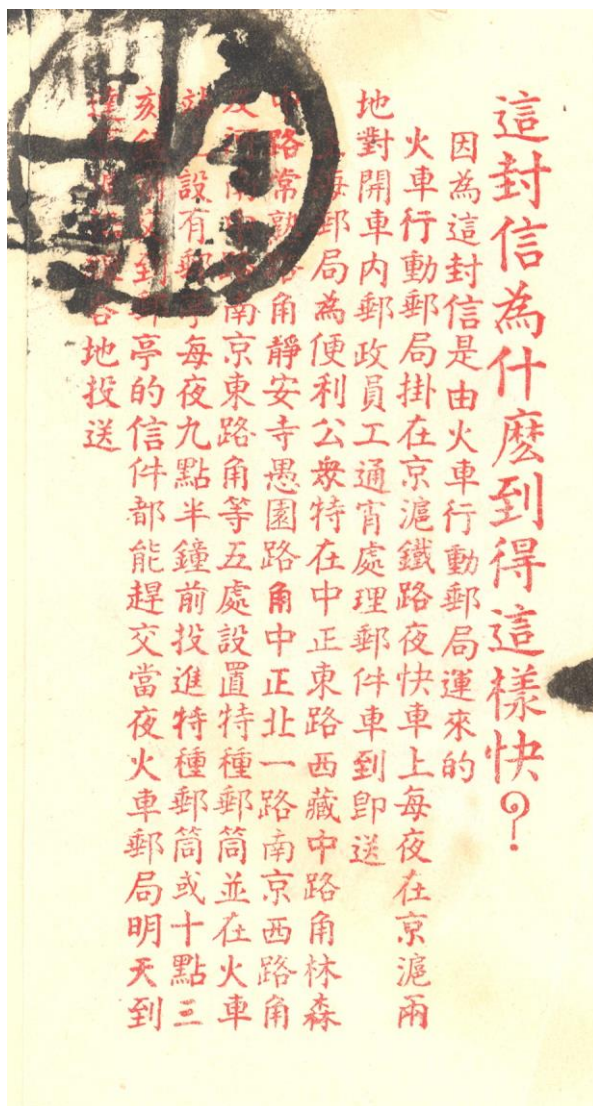 這封信為什麽到得這樣快?
因為這封信是由火車行動郵局運來的
火車行動郵局掛在京滬鐵路夜快車上每夜在京滬兩
地對開車內郵政員工通宵處理郵件車到卽送
上海郵局為便利公衆特在中正東路西藏中路角林森
中路常熟路角靜安寺愚園路角中正北一路南京西路角
及河南中路南京東路角等五處設置特種郵筒並在火車
站上設有郵亭每夜九點半鐘前投進特種郵筒或十點三
刻前交到郵亭的信件都能趕交當夜火車郵局明天到
達各地投送